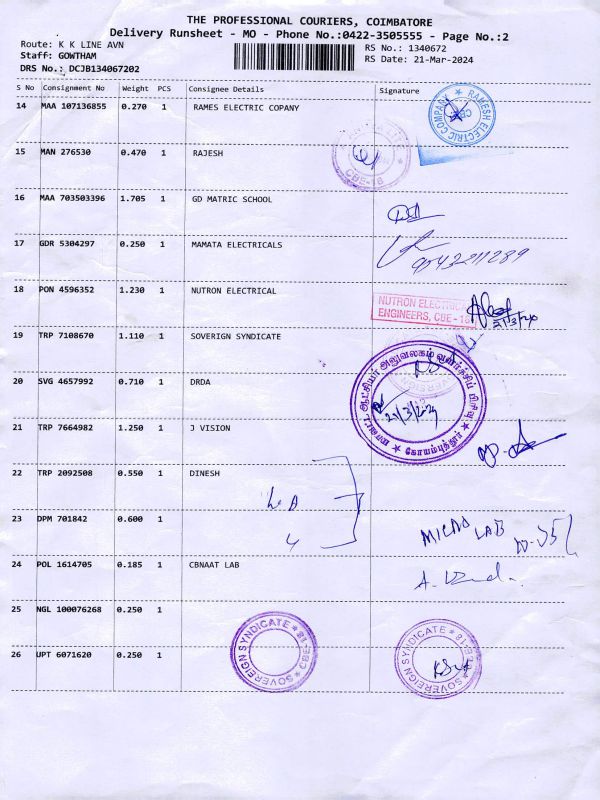 THE PROFESSIONAL COURIERS, COIMBATORE
Delivery Runsheet - MO - Phone No.:0422-3505555 - Page No.:2
Route: K K LINE AVN
RS No.: 1340672
Staff: GOWTHAM
RS Date: 21-Mar-2024
DRS No.: DCJB134067202
S No Consignment No Weight PCS Consignee Details Signature
14 MAA 107136855 0.270 1 RAMES ELECTRIC COPANY
RAMESH ELECTRIC COMPANY
15 MAN 276530 0.470 1 RAJESH
CBE-18
16 MAA 703503396 1.705 1 GD MATRIC SCHOOL
17 GDR 5304297 0.250 1 MAMATA ELECTRICALS
9543211289
18 PON 4596352 1.230 1 NUTRON ELECTRICAL
NUTRON ELECTRIC
ENGINEERS, CBE - 18
21/3/24
19 TRP 7108670 1.110 1 SOVERIGN SYNDICATE
20 SVG 4657992 0.710 1 DRDA
மாவட்ட ஆட்சியர் அலுவலகம்
21/3/24
கோயம்புத்தூர்
21 TRP 7664982 1.250 1 J VISION
22 TRP 2092508 0.550 1 DINESH
23 DPM 701842 0.600 1
MICRO LAB
24 POL 1614705 0.185 1 CBNAAT LAB
25 NGL 100076268 0.250 1
SOVEREIGN SYNDICATE CBE-18
SOVEREIGN SYNDICATE
26 UPT 6071620 0.250 1